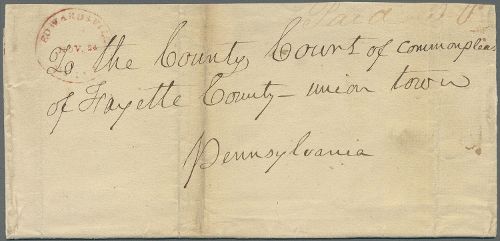 Paid
EDWARDSVILLE
NOV. 24
To the County Court of common pleas
of Fayette County - union town
Pennsylvania